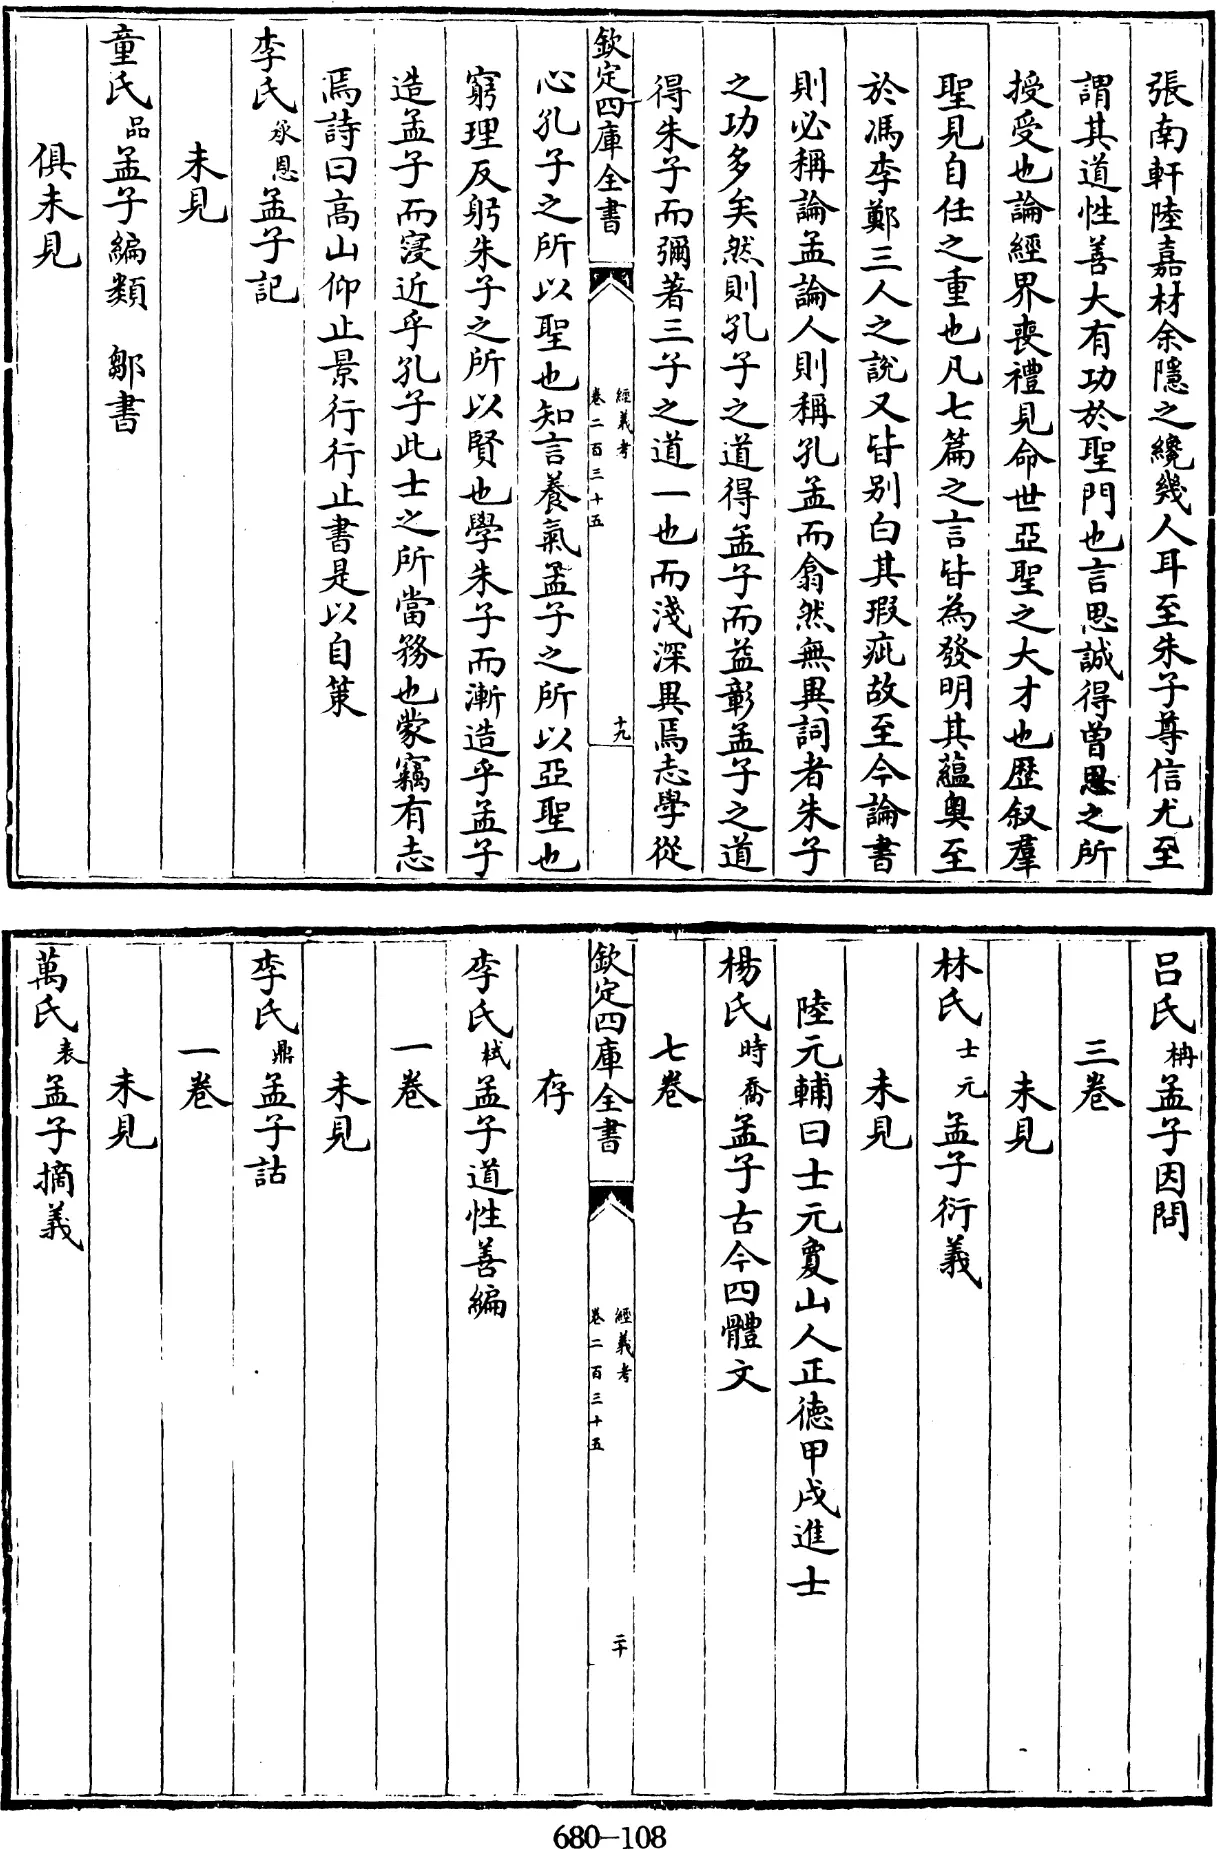 張南軒陸嘉材余隱之纔幾人耳至朱子尊信尤至
謂其道性善大有功於聖門也言思誠得曽思之所
授受也論經界喪禮見命世亞聖之大才也歴叙羣
聖見自任之重也凡七篇之言皆為發明其蘊奥至
於馮李鄭三人之說又皆别白其瑕疵故至今論書
則必稱論孟論人則稱孔孟而翕然無異詞者朱子
之功多矣然則孔子之道得孟子而益彰孟子之道
得朱子而彌著三子之道一也而淺深異焉志學從
欽定四庫全書
經義考
卷二百三十五
十九
心孔子之所以聖也知言養氣孟子之所以亞聖也
窮理反躬朱子之所以賢也學朱子而漸造乎孟子
造孟子而寖近乎孔子此士之所當務也蒙竊有志
焉詩曰高山仰止景行行止書是以自策
李氏承恩孟子記
未見
童氏品孟子編類 鄒書
俱未見
吕氏柟孟子因問
三卷
未見
林氏士元孟子衍義
未見
陸元輔曰士元瓊山人正德甲戌進士
楊氏時喬孟子古今四體文
七卷
欽定四庫全書
經義考
卷二百三十五
二十
存
李氏栻孟子道性善編
一卷
未見
李氏鼎孟子詁
一卷
未見
萬氏表孟子摘義
680-108